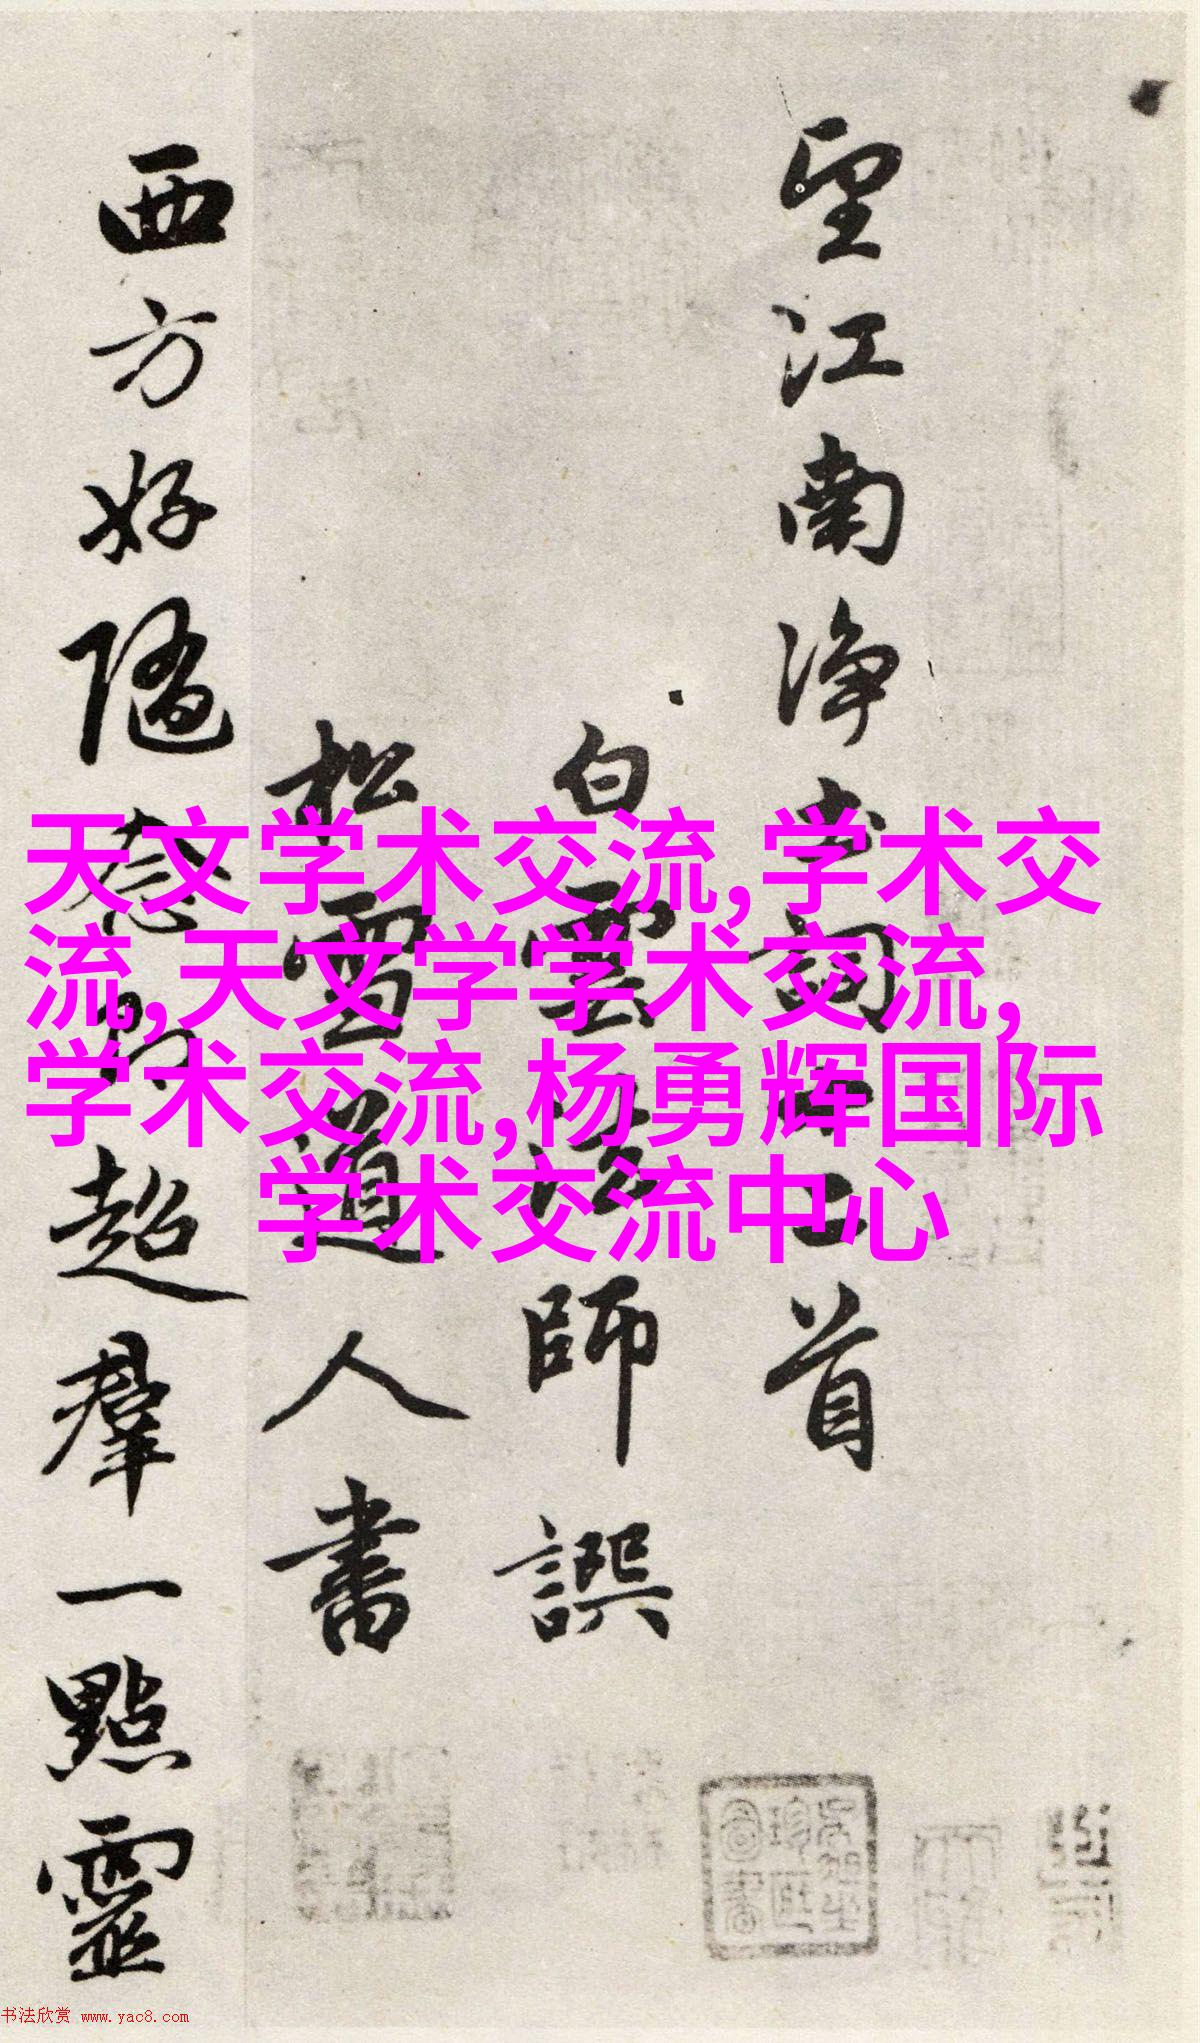 望江南净土词十二首
白雲法師譔
松雪道人書
西方好隨念即超羣一點靈
天文学术交流,学术交
流,天文学学术交流,
学术交流,杨勇辉国际
学术交流中心
书法欣赏 www.yac8.com